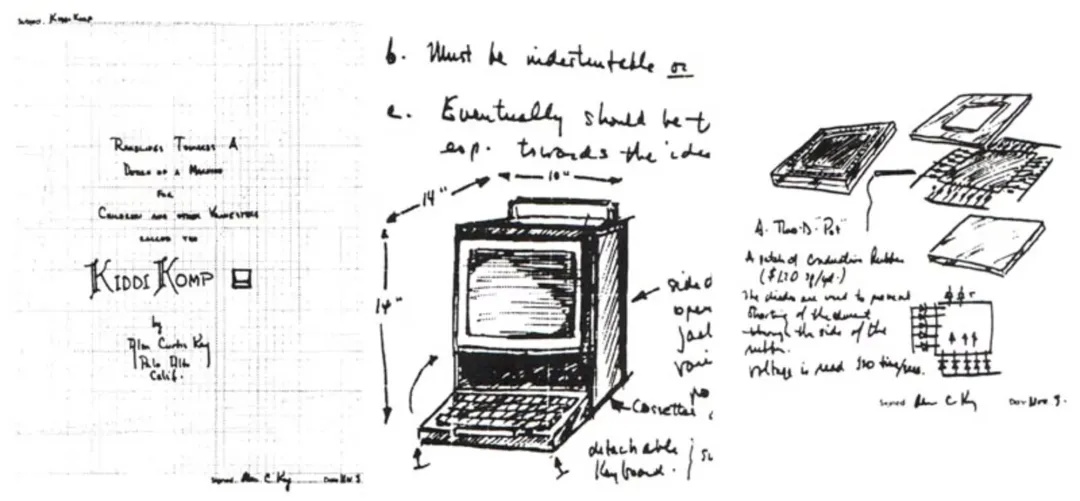 Subject. Kiddi Komp
Ramblings Towards A
Design of a Machine
For
Children and other
called the
KIDDI KOMP
by
Alan Curtis Kay
Palo Alto
Calif.
Signed Alan C Kay Date Nov. 5
b. Must be indestructable or
c. Eventually should be t
esp. towards the idea
10"
14"
14"
side o
open
jack
voi
po
Cassettes
detachable
Keyboard.
A. Two-D-"Pot"
A patch of Conductive Rubber
The diodes are used to prevent
shorting of the current
through the side of the
rubber.
Voltage is read
Signed Alan C Kay Date Nov. 5.